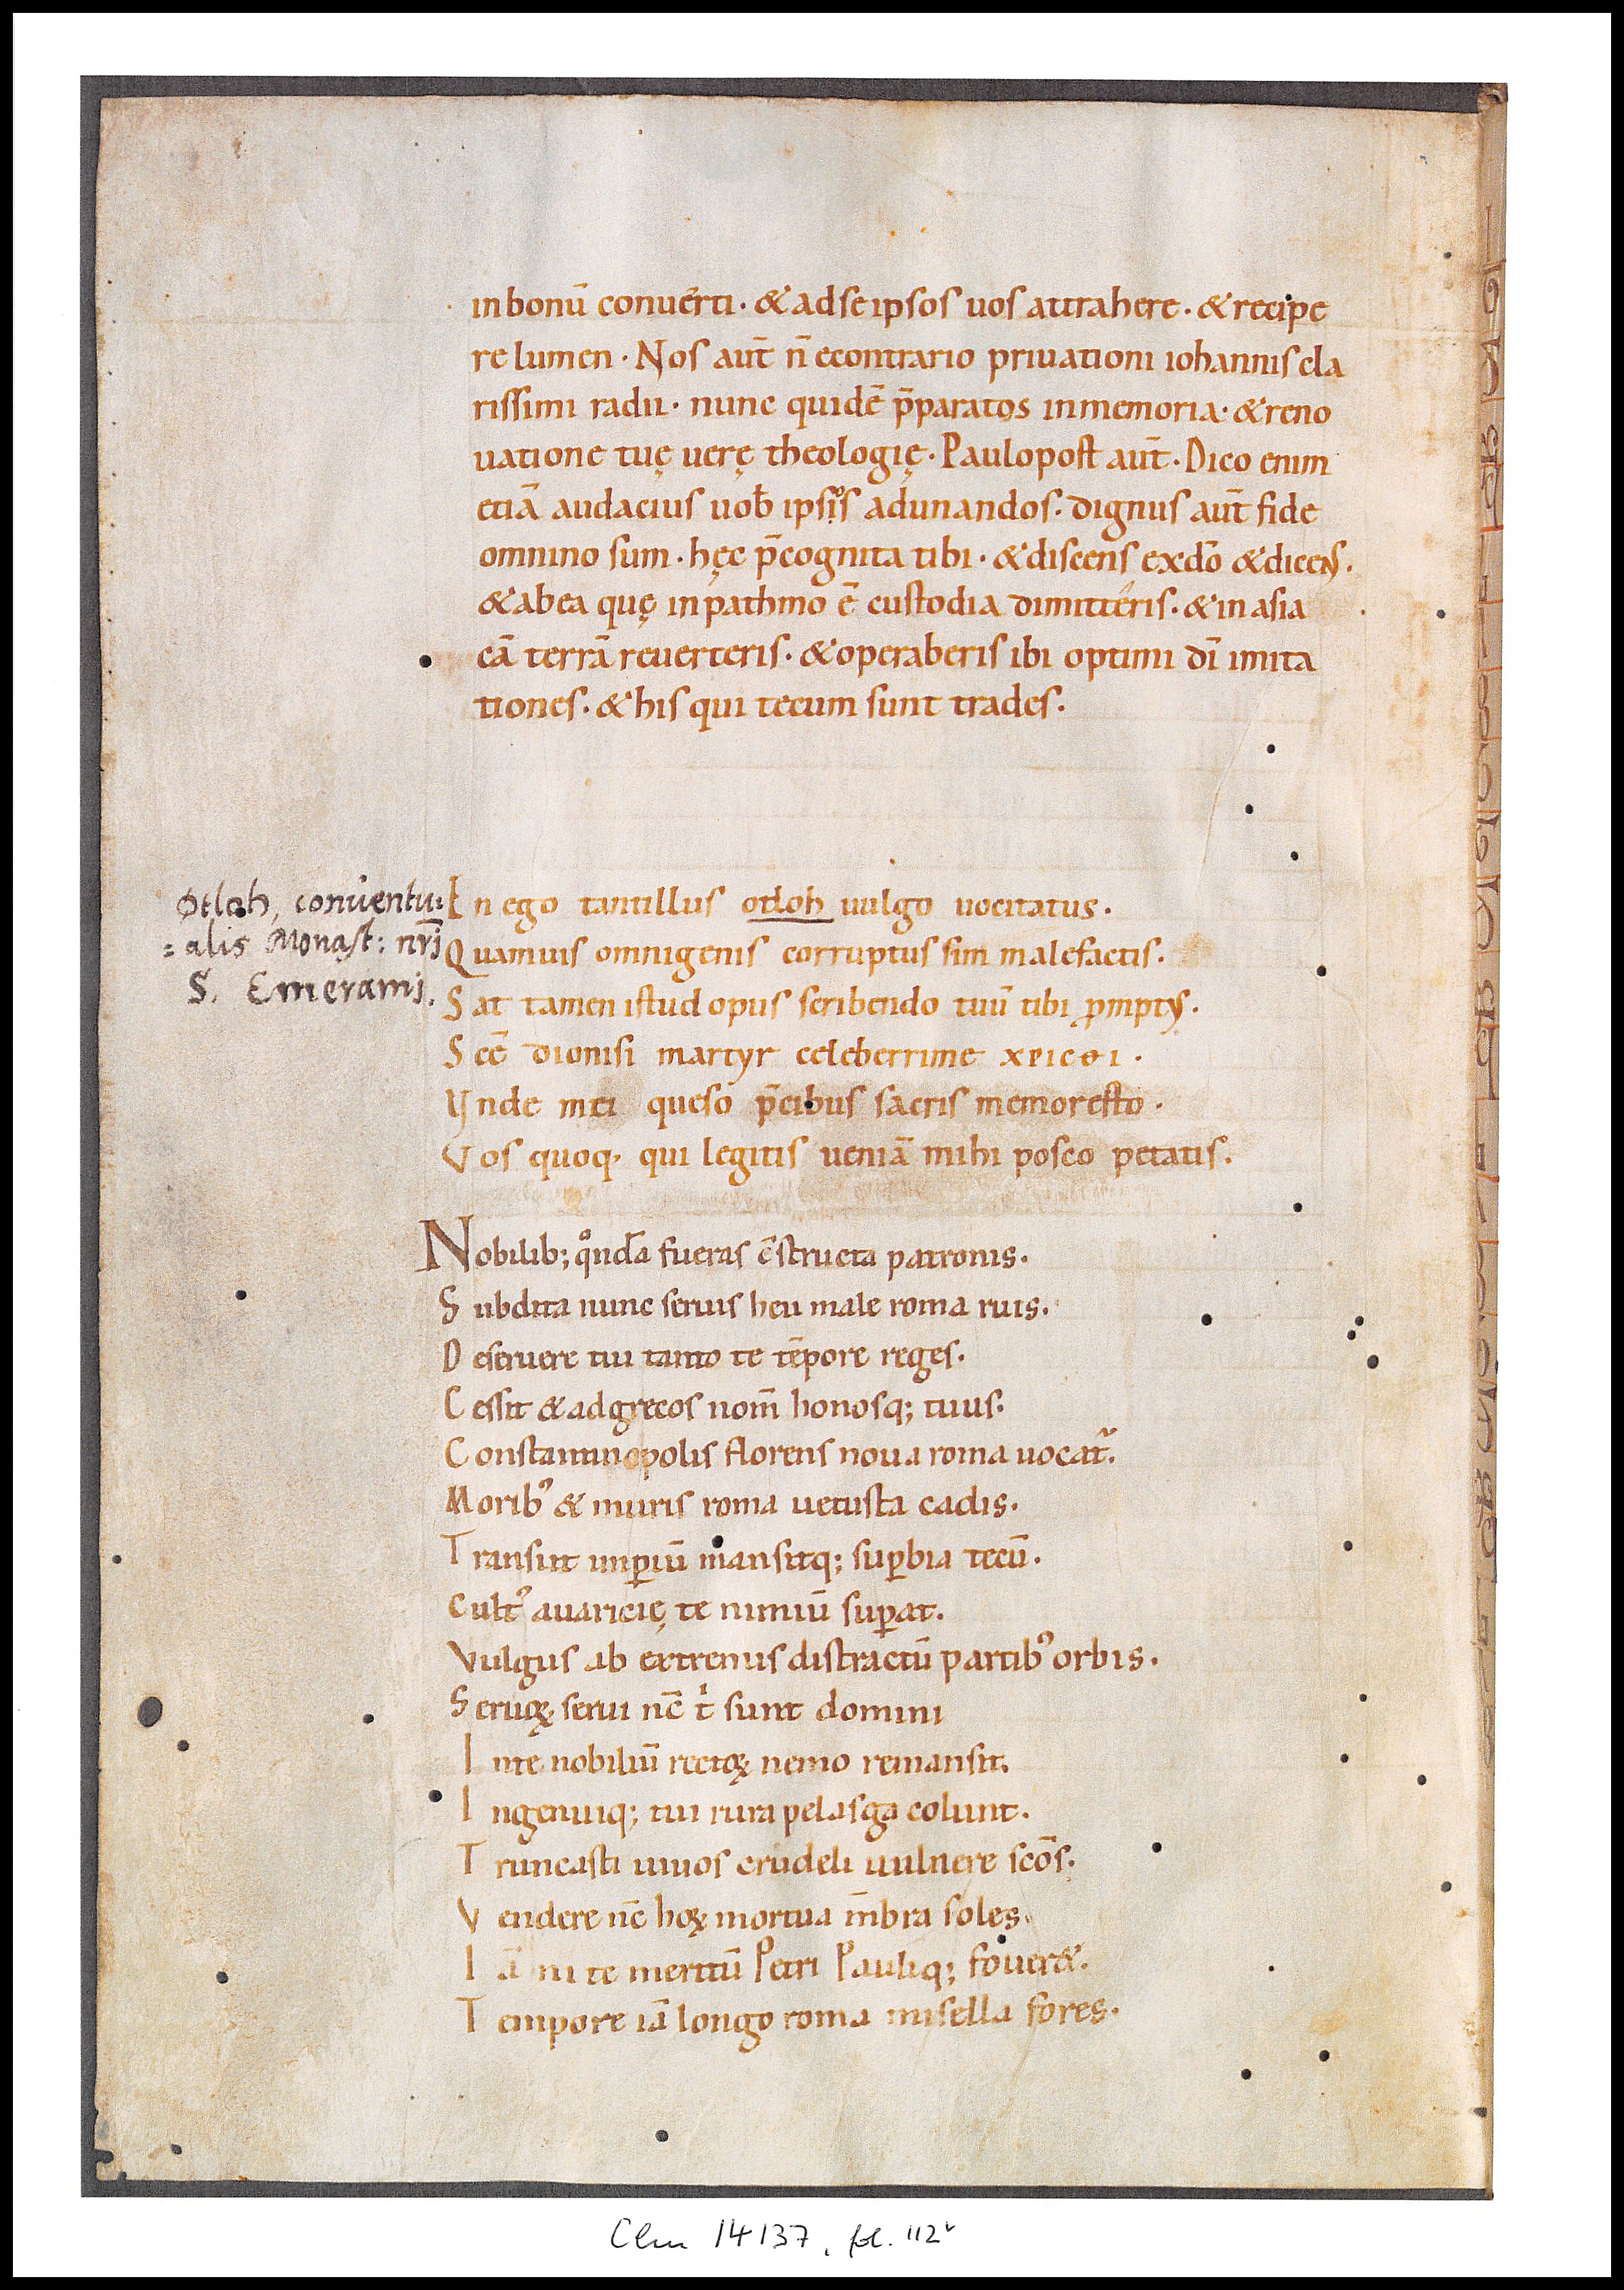 inbonū conuerti · & adse ipsos uos attrahere · & recipe
re lumen · Nos aūt n̄ econtrario priuationi iohannis cla
rissimi radii · nunc quidē p̄paratos inmemoria · & reno
uatione tuę uerę theologię · Paulopost aūt · Dico enim
etiā audacius uob̄ ipsis adunandos · dignus aūt fide
omnino sum · hęc p̄cognita tibi · & discens exdō & dicens ·
& abea quę inpathmo ē custodia dimitteris · & in asia
eā terrā reuerteris · & operaberis ibi optimi dī imita
tiones · & his qui tecum sunt trades ·
Otloh, conventu:
=alis Monast: nr̄j
S. Emeramj.
En ego tantillus otloh uulgo uocitatus ·
Quamuis omnigenis corruptus sim malefactis ·
Sat tamen istud opus scribendo tuū tibi p̄mptꝰ ·
Scē dionisi martyr celeberrime xpicti ·
Ynde mei queso p̄cibus sacris memoresto ·
Vos quoq· qui legitis ueniā mihi posco petatis ·
Nobilib; q̊ndā fueras c̄structa patronis ·
Subdita nunc seruis heu male roma ruis ·
Deseruere tui tanto te tēpore reges ·
Cessit & adgrecos nom̄ honosq; tuus ·
Constantinopolis florens noua roma uocat᷑ ·
Moribꝰ & muris roma uetusta cadis ·
Transiit imꝑiū mansitq; suꝑbia tecū ·
Cultꝰ auaricię te nimiū suꝑat ·
Vulgus ab extremis distractū partibꝰ orbis ·
Seruoꝝ serui nc̄ t͛ sunt domini
Inte nobiliū rectoꝝ nemo remansit ·
Ingenuiq; tui rura pelasga colunt ·
Truncasti uiuos crudeli uulnere scōs ·
Vendere nc̄ hoꝝ mortua m̄bra soles ·
Iā ni te meritū Petri Pauliq; fouer& ·
Tempore iā longo roma misella fores ·
Clm 14137, fol. 112v